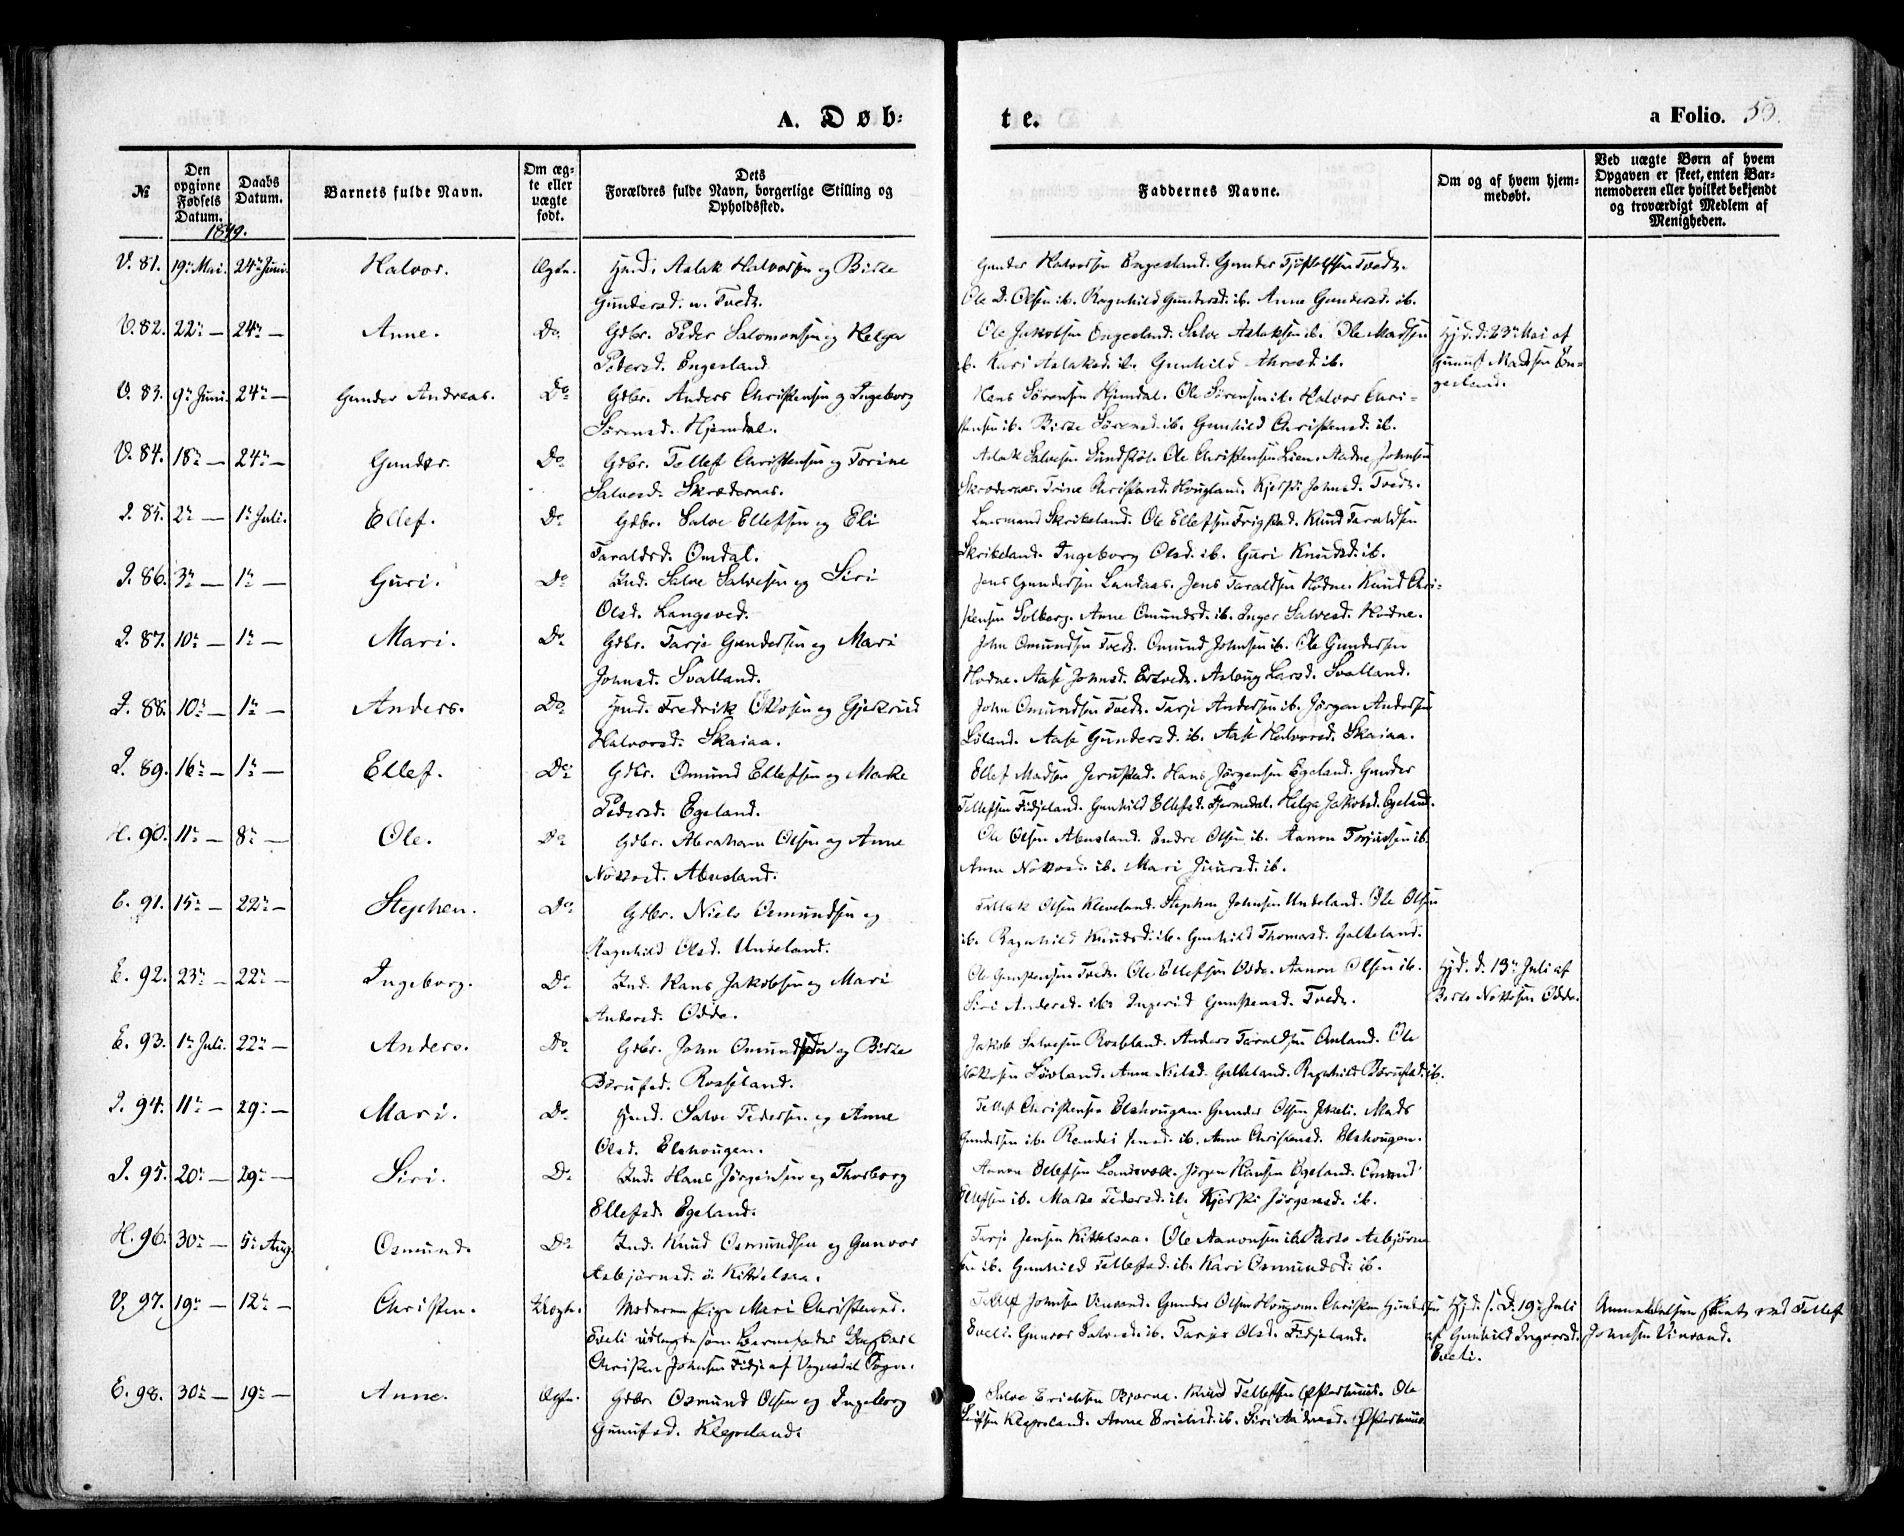 A. Døb-
te.
a Folio. 53.
№
Den opgivne Fødsels Datum.
Daabs Datum.
Barnets fulde Navn.
Om ægte eller uægte født.
Dets Forældres fulde Navn, borgerlige Stilling og Opholdssted.
Faddernes Navne.
Om og af hvem hjemmedøbt.
Ved uægte Børn af hvem Opgaven er skeet, enten Barnemoderen eller hvilket bekjendt og troværdigt Medlem af Menigheden.
1849.
V. 81. 19de Mai. 24de Juni. Halvor. Ægte. Aslak Halvorsen og Birte
Gundersd. Tvedt.
Gunder Halvorsen Engesland. Gunder Tjøstolfsen Tvedt.
Ole D. Olsen ib. Ragnhild Gundersd. ib. Anne Gundersd. ib.
V. 82. 22de — 24de — Anne. Do. Gdbr. Peder Salomonsen og Helga
Pedersd. Engesland
Ole Jakobsen Engesland. Salve Aslaksen ib. Ole Madssen
ib. Kari Aslaksd. ib. Gunhild ib.
Hjd. d. 23de Mai af
Madssen En-
gesland.
V. 83. 9de Juni. 24de — Gunder Andreas. Do. Gdbr. Anders Christensen og Ingeborg
Sørensd. Hjemdal.
Hans Sørensen Hjemdal. Ole Sørensen ib. Halvor Chri-
stensen ib. Birte Sørensd. ib. Gunhild Christensd. ib.
V. 84. 18de — 24de — Gunder. Do. Gdbr. Tellef Christensen og Torine
Salvesd. Skrædernæs.
Aslak Salvesen Sundstøl. Ole Christensen Lien. Aadne Johnsen
Skrædernæs. Trine Christensd. Hougland. Kjersti Johnsd. Tvedt.
I. 85. 2de — 1ste Juli. Ellef. Do. Gdbr. Salve Ellefsen og Eli
Taraldsd. Omdal.
Lensmand Skrikeland. Ole Ellefsen Frigstad. Knud Taraldsen
Skrikeland. Ingeborg Olsd. ib. Guri Knudsd. ib.
I. 86. 3de — 1ste — Guri. Do. Ind. Salve Salvesen og Siri
Olsd. Langeved.
Jens Gundersen Landaas. Jens Taraldsen Hodne. Knud Chri-
stensen Solberg. Anne Omundsd. ib. Inger Salvesd. Hodne.
I. 87. 10de — 1ste — Mari. Do. Gdbr. Tarje Gundersen og Mari
Johnsd. Svalland.
John Omundsen Tvedt. Omund Johnsen ib. Ole Gundersen
Hodne. Aase Johnsd. Ertvedt. Aslaug Larsd. Svalland.
I. 88. 10de — 1ste — Anders. Do. Fredrik Ottosen og Gjertrud
Halvorsd. Skaiaa.
John Omundsen Tvedt. Tarje Andersen ib. Jørgen Andersen
Løland. Aase Gundersd. ib. Aase Halvorsd. Skaiaa.
I. 89. 16de — 1ste — Ellef. Do. Gdbr. Omund Ellefsen og Marte
Pedersd. Egeland.
Ellef Madsen Jerustad. Hans Jørgensen Egeland. Gunder
Tellefsen Fidjeland. Gunhild Ellefsd. Helga Jakobsd. Egeland.
H. 90. 11te — 8de — Ole. Do. Gdbr. Abraham Olsen og Anne
Nottosd. Abusland.
Ole Olsen Abusland. Endre Olsen ib. Aanon Torjussen ib.
Anne Nottosd. ib. Mari ib.
E. 91. 15de — 22de — Stephen. Do. Gdbr. Niels Osmundsen og
Ragnhild Olsd. Undeland.
Tellak Olsen Kleveland. Stephen Johnsen Undeland. Ole Olsen
ib. Ragnhild Knudsd. ib. Gunhild Thomasd. Galteland.
E. 92. 23de — 22de — Ingeborg. Do. Ind. Hans Jakobsen og Mari
Andersd. Odde.
Ole Gunstensen Tvedt. Ole Ellefsen Odde. Aanon Olsen ib.
Siri Andersd. ib. Ingerid Gunstensd. Tvedt.
Hjd. d. 13de Juli af
Berte Nottosen Odde.
E. 93. 1ste Juli. 22de — Anders. Do. Gdbr. John Omundsen og Birte
Berulfsd. Rosseland.
Jakob Salvesen Rosseland. Anders Taraldsen Omland. Ole
Nottosen Løvland. Anne Nielsd. Galteland. Ragnhild ib.
I. 94. 11te — 29de — Mari. Do. Salve Pedersen og Anne
Olsd. Elshougen.
Tellef Christensen Elshougen. Gunder Olsen. Mads
Gundersen ib. Jensd. ib. Anne Christensd. Elshougen.
I. 95. 20de — 29de — Siri. Do. Ind. Hans Jørgensen og Thorborg
Ellefsd. Egeland.
Aanon Ellefsen. Jørgen Hansen Egeland. Omund
Ellefsen ib. Marte Pedersd. ib. Kjersti Jørgensd. ib.
H. 96. 30te — 5te Aug. Osmund. Do. Ind. Knud Osmundsen og Gunvor
Asbjørnsd. ø. Kittelsaa.
Tarje Jensen Kittelsaa. Ole Aanonsen ib. Asbjørn-
sen ib. Gunhild Tellefsd. ib. Kari Osmundsd. ib.
V. 97. 19de — 12te — Christen. Uægte. Moderen Pige Mari Christensd.
Eveli udlagde som Barnefader Ungkarl
Christen Johnsen Fidje af Vegusdal Sogn.
Tellef Johnsen Vinrand. Gunder Olsen Hougen. Christen Gundersen
Eveli. Gunvor Salvesd. ib. Tarjer Olsd. Fidjeland.
Hjd. s. D. 19de Juli
af Gunhild Ingvorsd.
Eveli.
Anmeldelsen skeet ved Tellef
Johnsen Vinrand.
E. 98. 30te — 19de — Anne. Ægte. Gdbr. Osmund Olsen og Ingeborg
Gunufsd. Klepsland.
Salve Erichsen. Knud Tellefsen Østerhuus. Ole
Klepsland. Anne Erichsd. ib. Siri Østerhuus